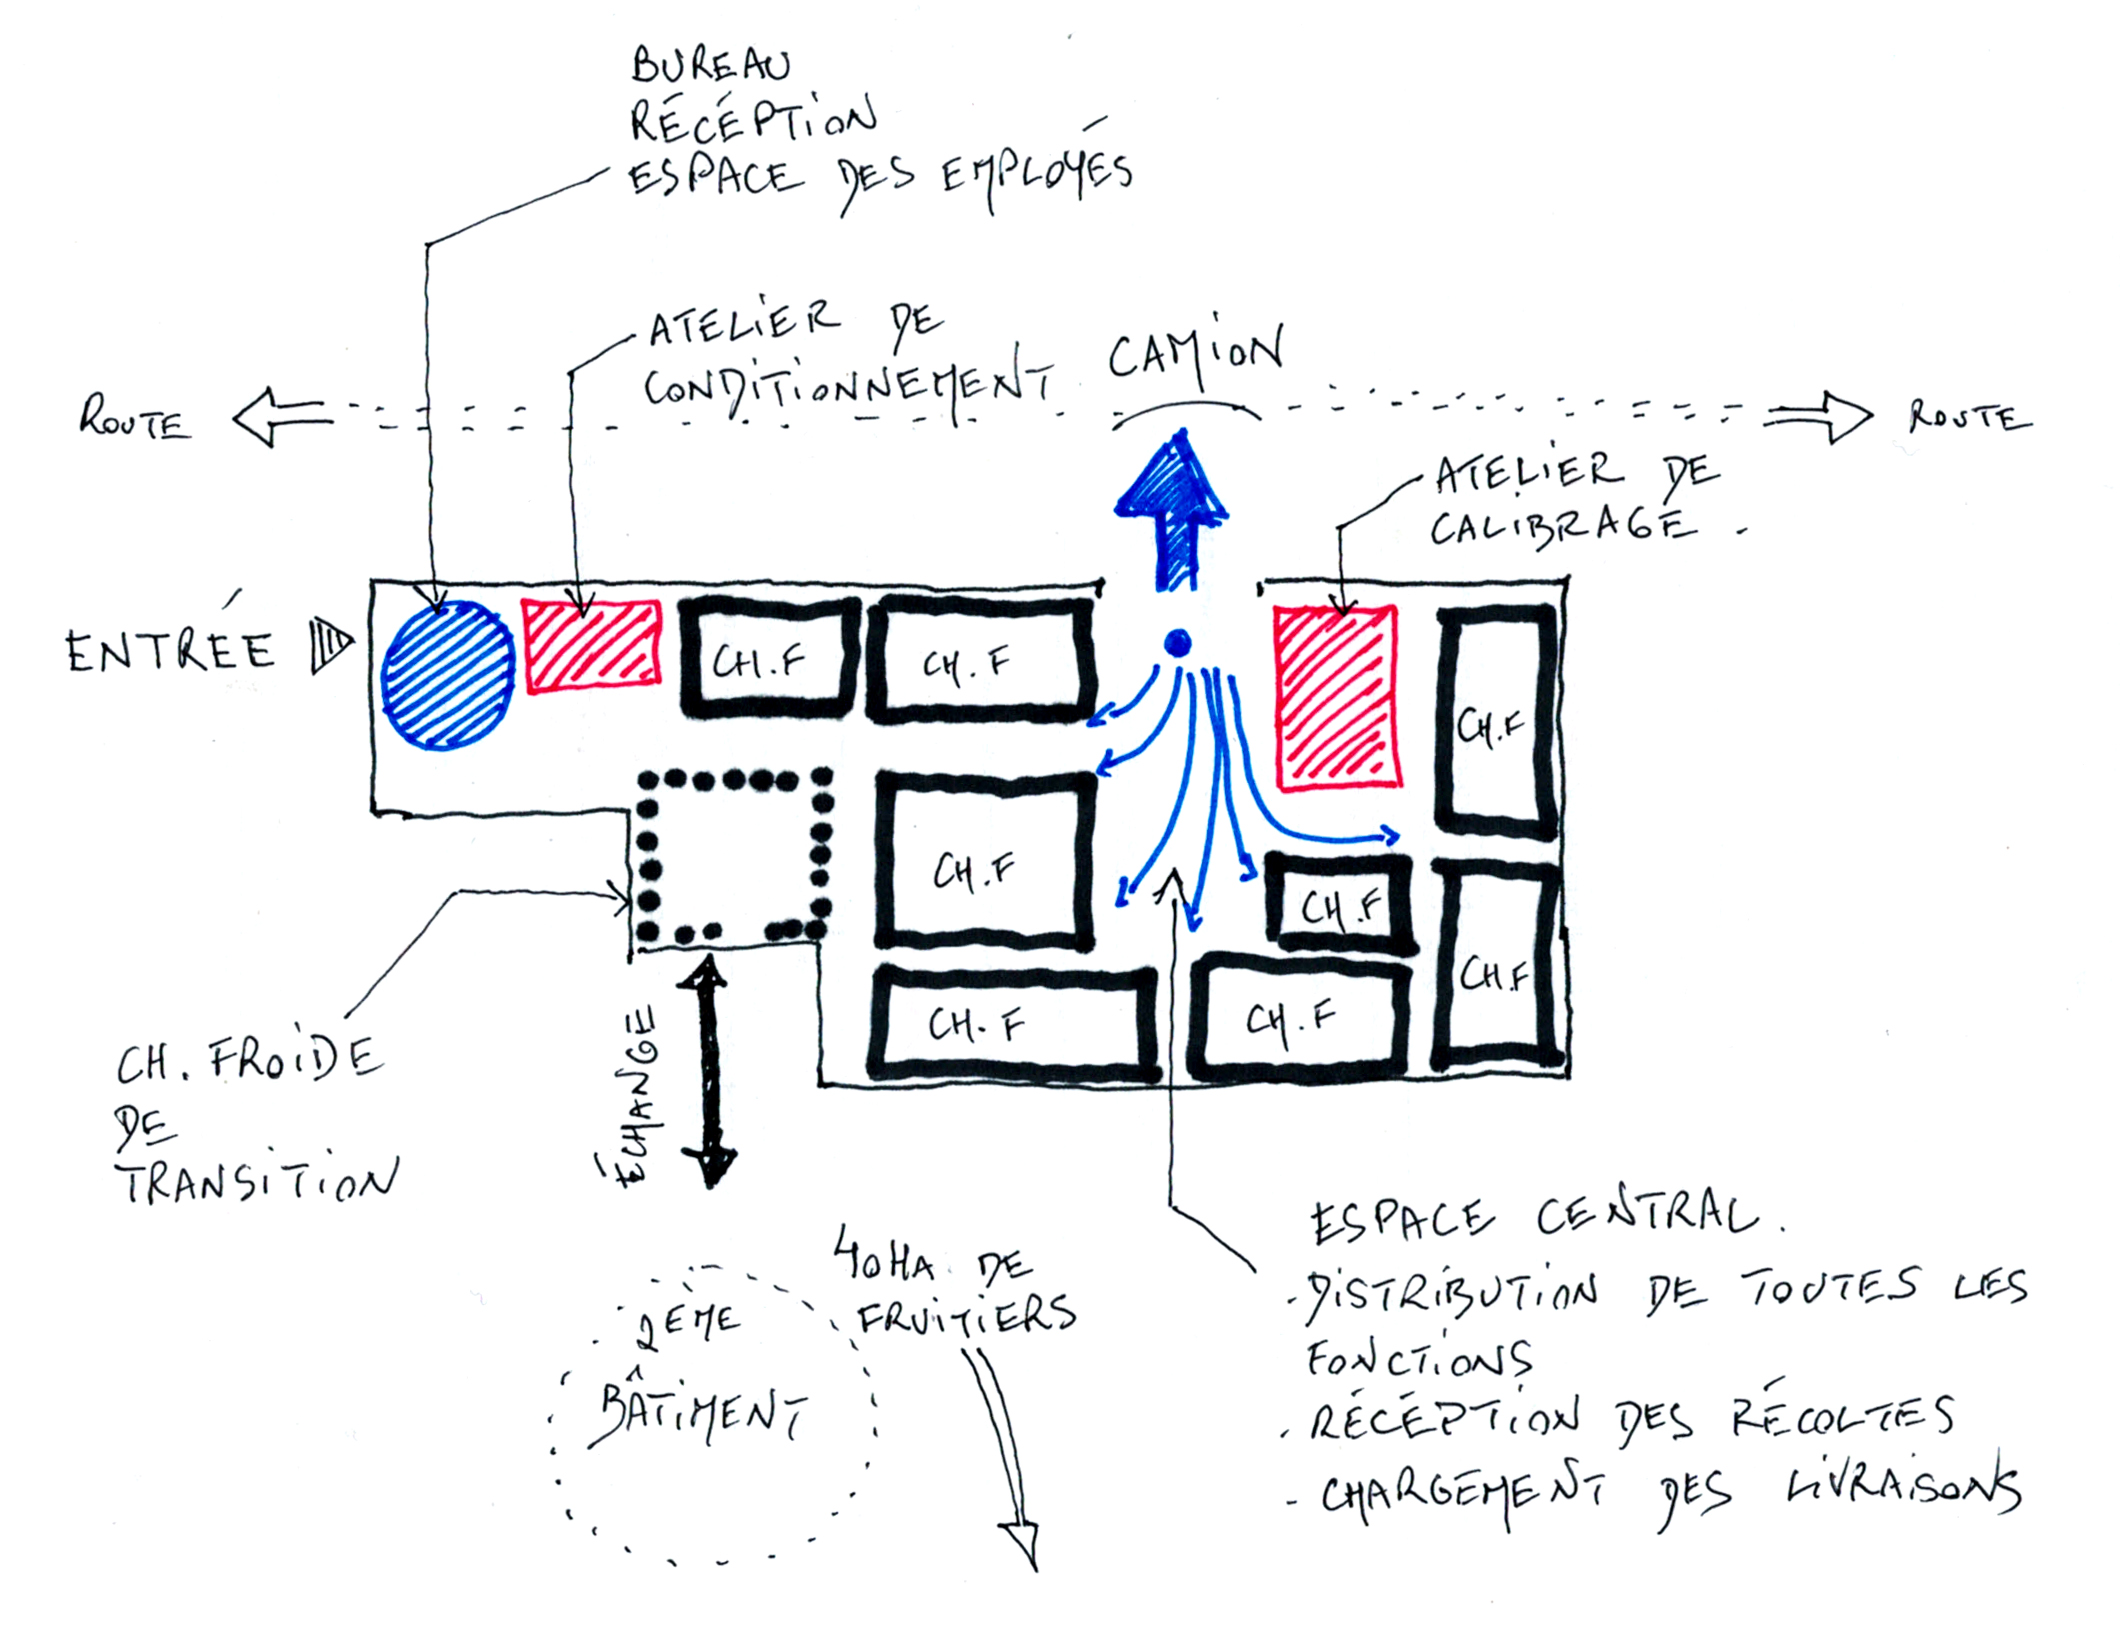 BUREAU
RÉCÉPTION
ESPACE DES EMPLOYÉS
ATELIER DE
CONDITIONNEMENT
CAMION
ROUTE
ROUTE
ATELIER DE
CALIBRAGE.
ENTRÉE
CH.F
CH.F
CH.F
CH.F
CH.F
CH.F
CH.F
CH.F
CH. FROIDE
DE
TRANSITION
ÉCHANGE
40HA DE
FRUITIERS
2ÈME
BÂTIMENT
ESPACE CENTRAL.
- DISTRIBUTION DE TOUTES LES
FONCTIONS
- RÉCÉPTION DES RÉCOLTES
- CHARGEMENT DES LIVRAISONS